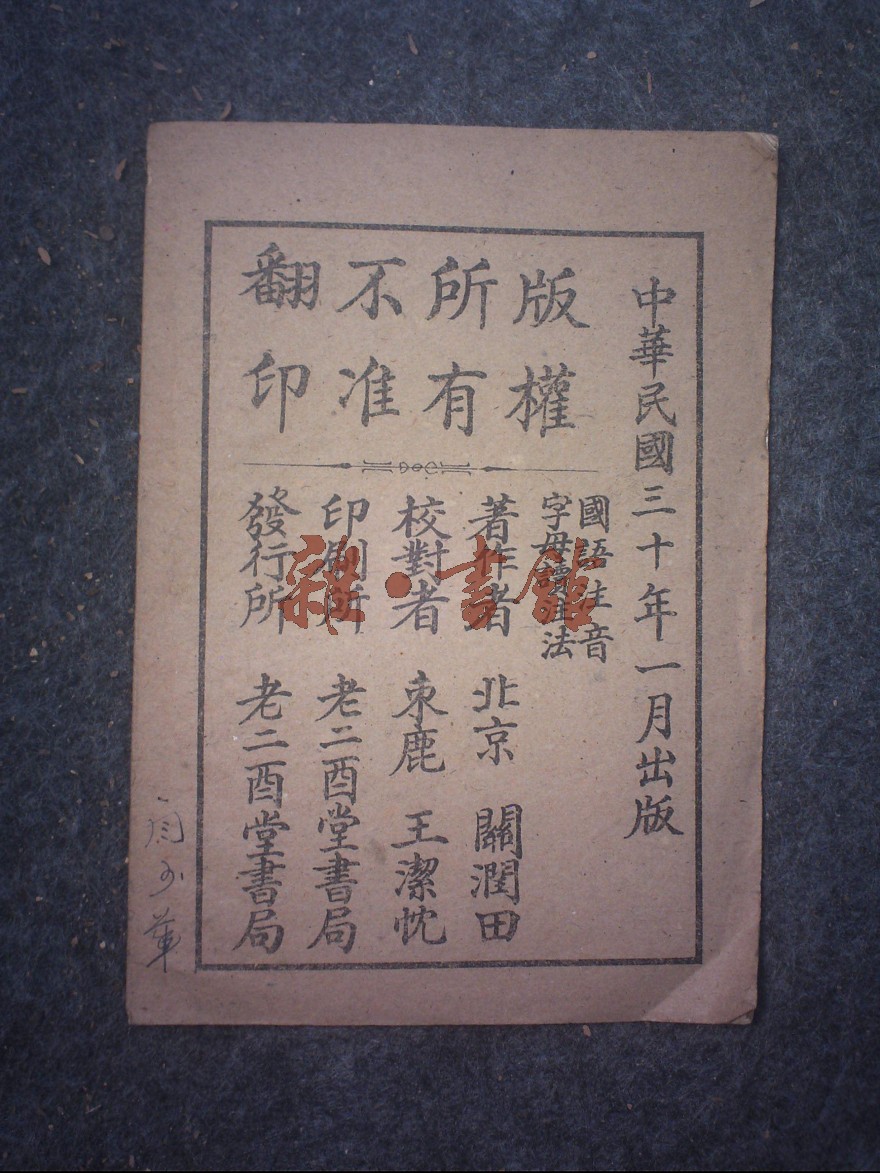 中華民國三十年一月出版
版權
所有
不准
翻印
國語注音
字母讀注法
著作者 北京 關潤田
校對者 束鹿 王潔忱
印刷所 老二酉堂書局
發行所 老二酉堂書局
雜·書館